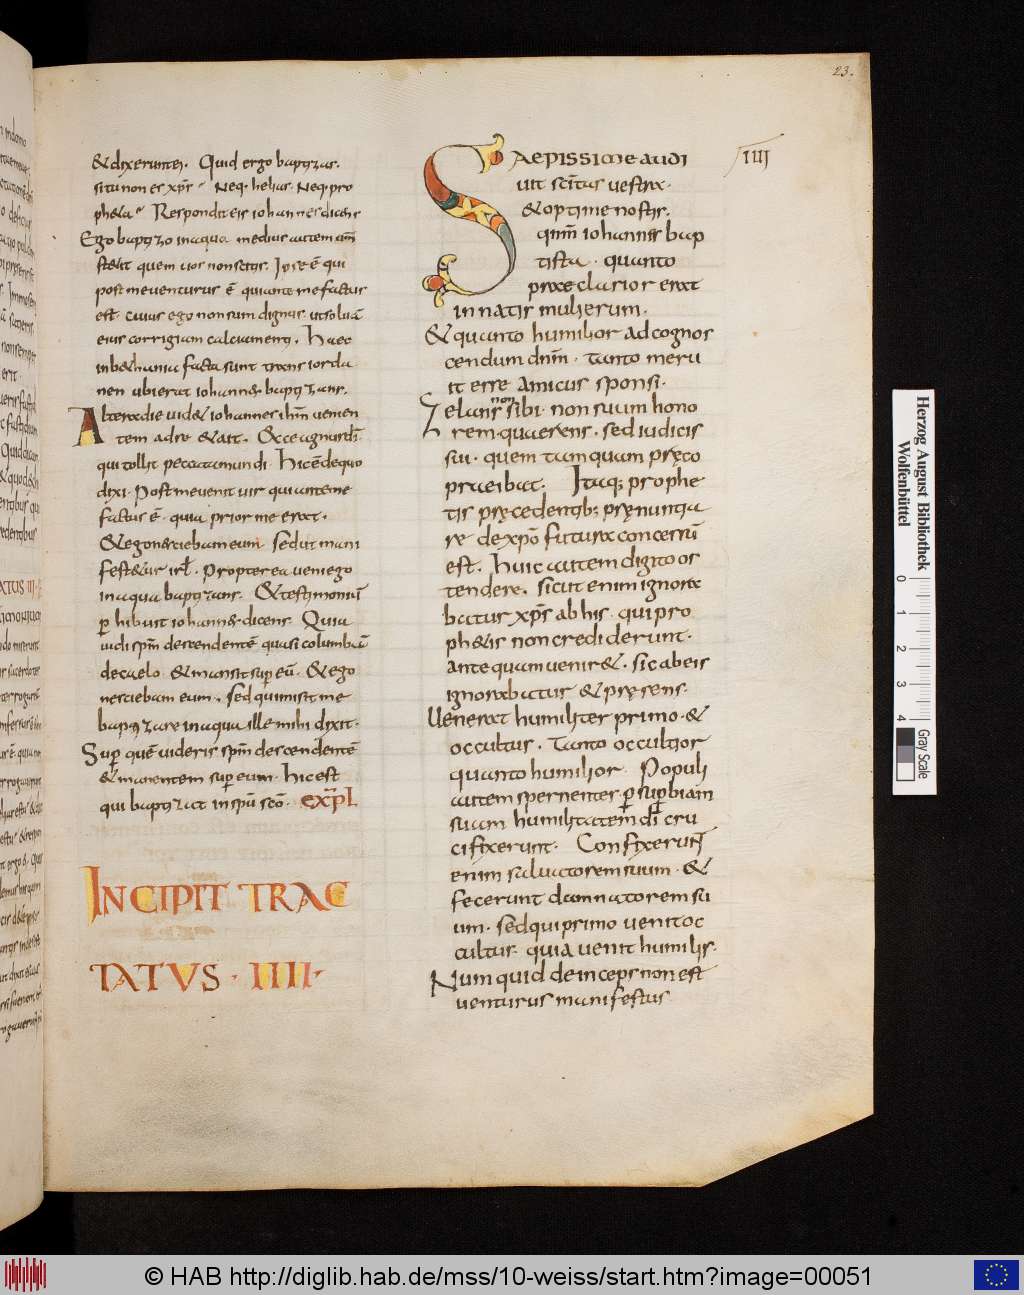 23.
& dixerunt ei. Quid ergo baptizas.
si tu non es xp̄s. Neq· helias. Neq· pro
ph&a. Respondit eis iohannes dicens
Ego baptizo in aqua medius autem ūm̄
st&it quem uos non scitis. Ipse ē qui
post me uenturus ē qui ante me factus
est. cuius ego non sum dignus. ut soluā
eius corrigiam calciamenti. Haec
in b&hania facta sunt trans iorda
nen ubi erat iohannes baptizans.
Altera die uid& iohannes ih̄m uenien
tem ad se & ait. Ecce agnus d̄i
qui tollit peccata mundi. Hic ē de quo
dixi. Post me uenit uir qui ante me
factus ē. quia prior me erat.
& ego nesciebam eum sed ut mani
fest&ur isrł. Propterea ueni ego
in aqua baptizans. & testimoniū
phibuit iohannes dicens. Quia
uidi sp̄m descendentē quasi columbā
de caelo & mansit sup eū. & ego
nesciebam eum. sed qui misit me
baptizare in aqua ille mihi dixit.
Sup quē uideris sp̄m descendentē
& manentem sup eum. hic est
qui baptizat in sp̄u sc̄o. expl
INCIPIT TRAC
TATUS · IIII ·
IIII
SAEPISSIME AUDI
UIT sc̄itas uestra.
& optime nostis.
qm̄ iohannes bap
tista. quanto
praeclarior erat
in natis mulierum.
& quanto humilior ad cognos
cendum dn̄m. tanto meru
it esse amicus sponsi.
Zelans non sibi. non suum hono
rem quaerens. sed iudicis
sui. quem tamquam pręco
praeibat. Itaq; prophe
tis pręcedentib; pręnuntia
re de xp̄o futura concessū
est. huic autem digito os
tendere. sicut enim ignora
batur xp̄s ab his. qui pro
ph&is non crediderunt.
antequam uenir&. sic ab eis
ignorabatur & pręsens.
Uenerat humiliter primo. &
occultus. tanto occultior
quanto humilior. Populi
autem spernentes p supbiam
suam humilitatem d̄i cru
cifixerunt. Con fixerunt
enim saluatorem suum. &
fecerunt damnatorem su
um. sed qui primo uenit oc
cultus. quia uenit humilis.
Numquid deinceps non est
uenturus manifestus
Herzog August Bibliothek
Wolfenbüttel
0 1 2 3 4
Gray Scale
© HAB http://diglib.hab.de/mss/10-weiss/start.htm?image=00051